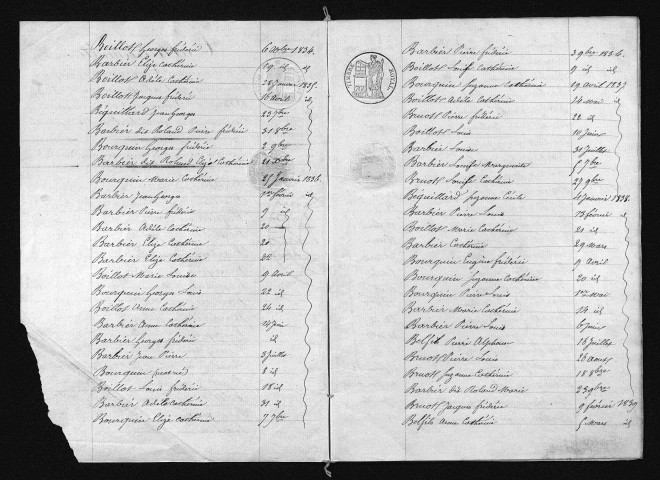 Boillot Georges frédéric 6 Xbre 1834.
Barbier Elize Catherine 19 id id
Boillot Adèle Catherine 28 Janvier 1835.
Boillot Jacques frédéric 16 Avril id
Béguillard Jean George 23 7bre
Barbier dit Roland Pierre frédéric 31 8bre
Bourquin George frédéric 2 9bre
Barbier dit Roland Elize Catherine 21 Xbre
Bourquin Marie Catherine 25 Janvier 1836.
Barbier Jean George 1er février id
Barbier Pierre frédéric 9 id
Barbier Adèle Catherine 20
Barbier Elize Catherine 20
Barbier Elize Catherine 22
Boillot Marie Louise 9 Avril
Bourquin George Louis 22 id
Boillot Anne Catherine 24 id
Barbier Anne Catherine 14 Juin
Barbier Georges frédéric id
Barbier Jean Pierre 3 Juillet
Bourquin 8 id
Boillot Louis frédéric 18 id
Barbier Adèle Catherine 31 id
Bourquin Elize Catherine 7 7bre
Barbier Pierre frédéric 3 9bre 1836.
Boillot Louise Catherine 9 id id
Bourquin Suzanne Catherine 19 avril 1837
Boillot Adèle Catherine 14 mai id
Bruot Pierre frédéric 22 id
Boillot Louis 10 Juin
Barbier Louise 31 Juillet
Barbier Louise Marguerite 5 7bre
Bruot Louise Catherine 27 9bre
Béquillard Suzanne Cécile 4 Janvier 1838.
Barbier Pierre Louis 13 février id
Boillot Marie Catherine 21 id
Barbier Catherine 29 Mars
Bourquin Eugène frédéric 9 Avril
Bourquin Suzanne Catherine 20 id
Bourquin Pierre Louis 1er Mai
Barbier Marie Catherine 14 id
Barbier Pierre Louis 6 Juin
Belfils Pierre Alphonse 16 Juillet
Bruot Pierre Louis 26 Aout
Bruot Suzanne Catherine 18 8bre
Barbier dit Roland Marie 23 9bre
Bruot Jacques frédéric 9 février 1839
Belfils Anne Catherine 5 Mars id